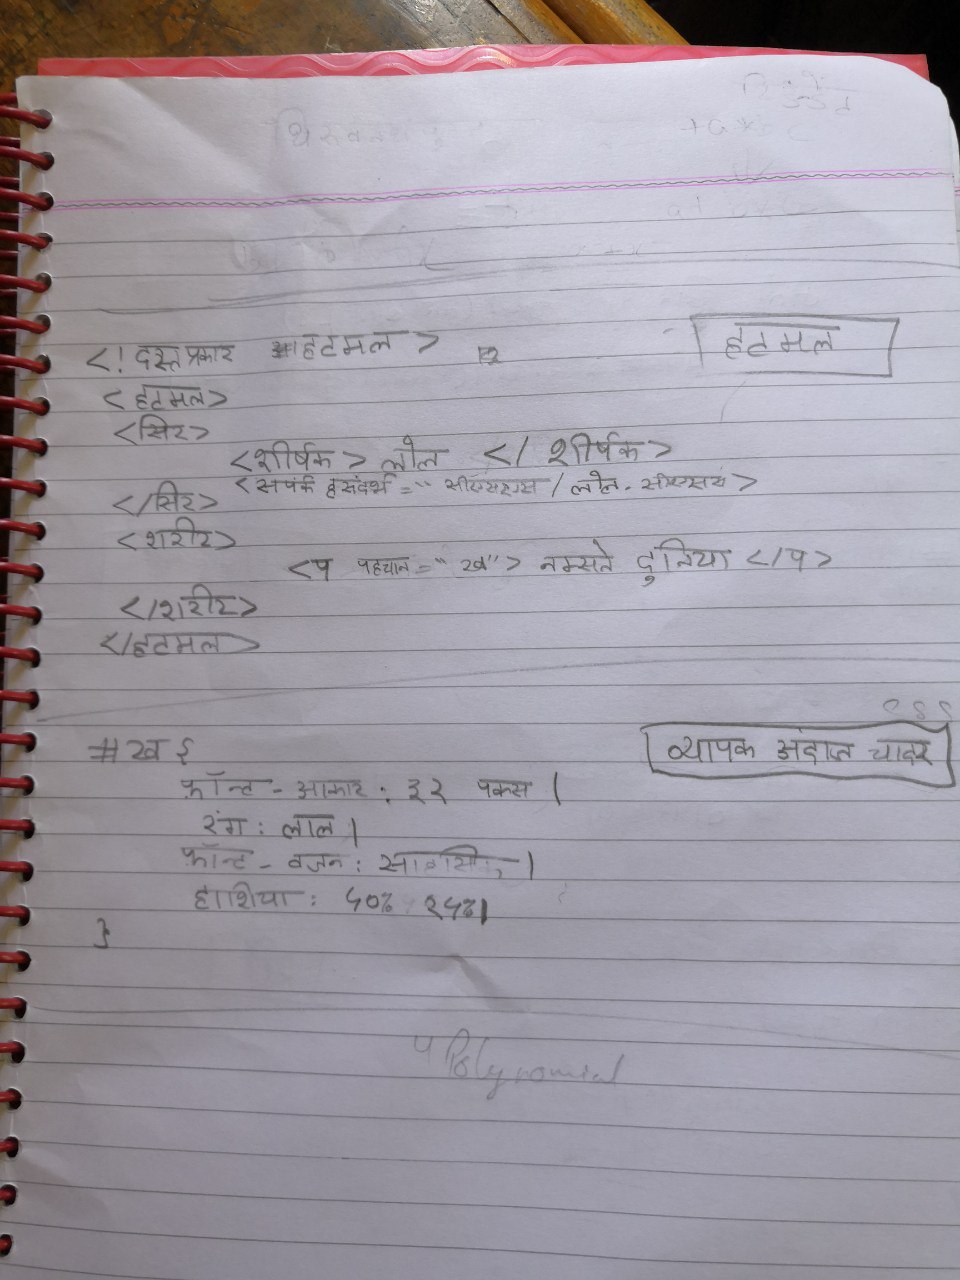 <! दस्तप्रकार हटमल>
हटमल
<हटमल>
<सिर>
<शीर्षक> लोल </ शीर्षक>
<संपर्क हसंदर्भ = " / लोल.
</सिर>
<शरीर>
<प पहचान = "ख"> नम्सते दुनिया </प>
</शरीर>
</हटमल>
css
व्यापक अंदाज चादर
#ख {
फ़ॉन्ट - आकार : ३२ पकस |
रंग : लाल |
फॉन्ट - वजन :
हाशिया : ५०% २५% |
}
Polynomial